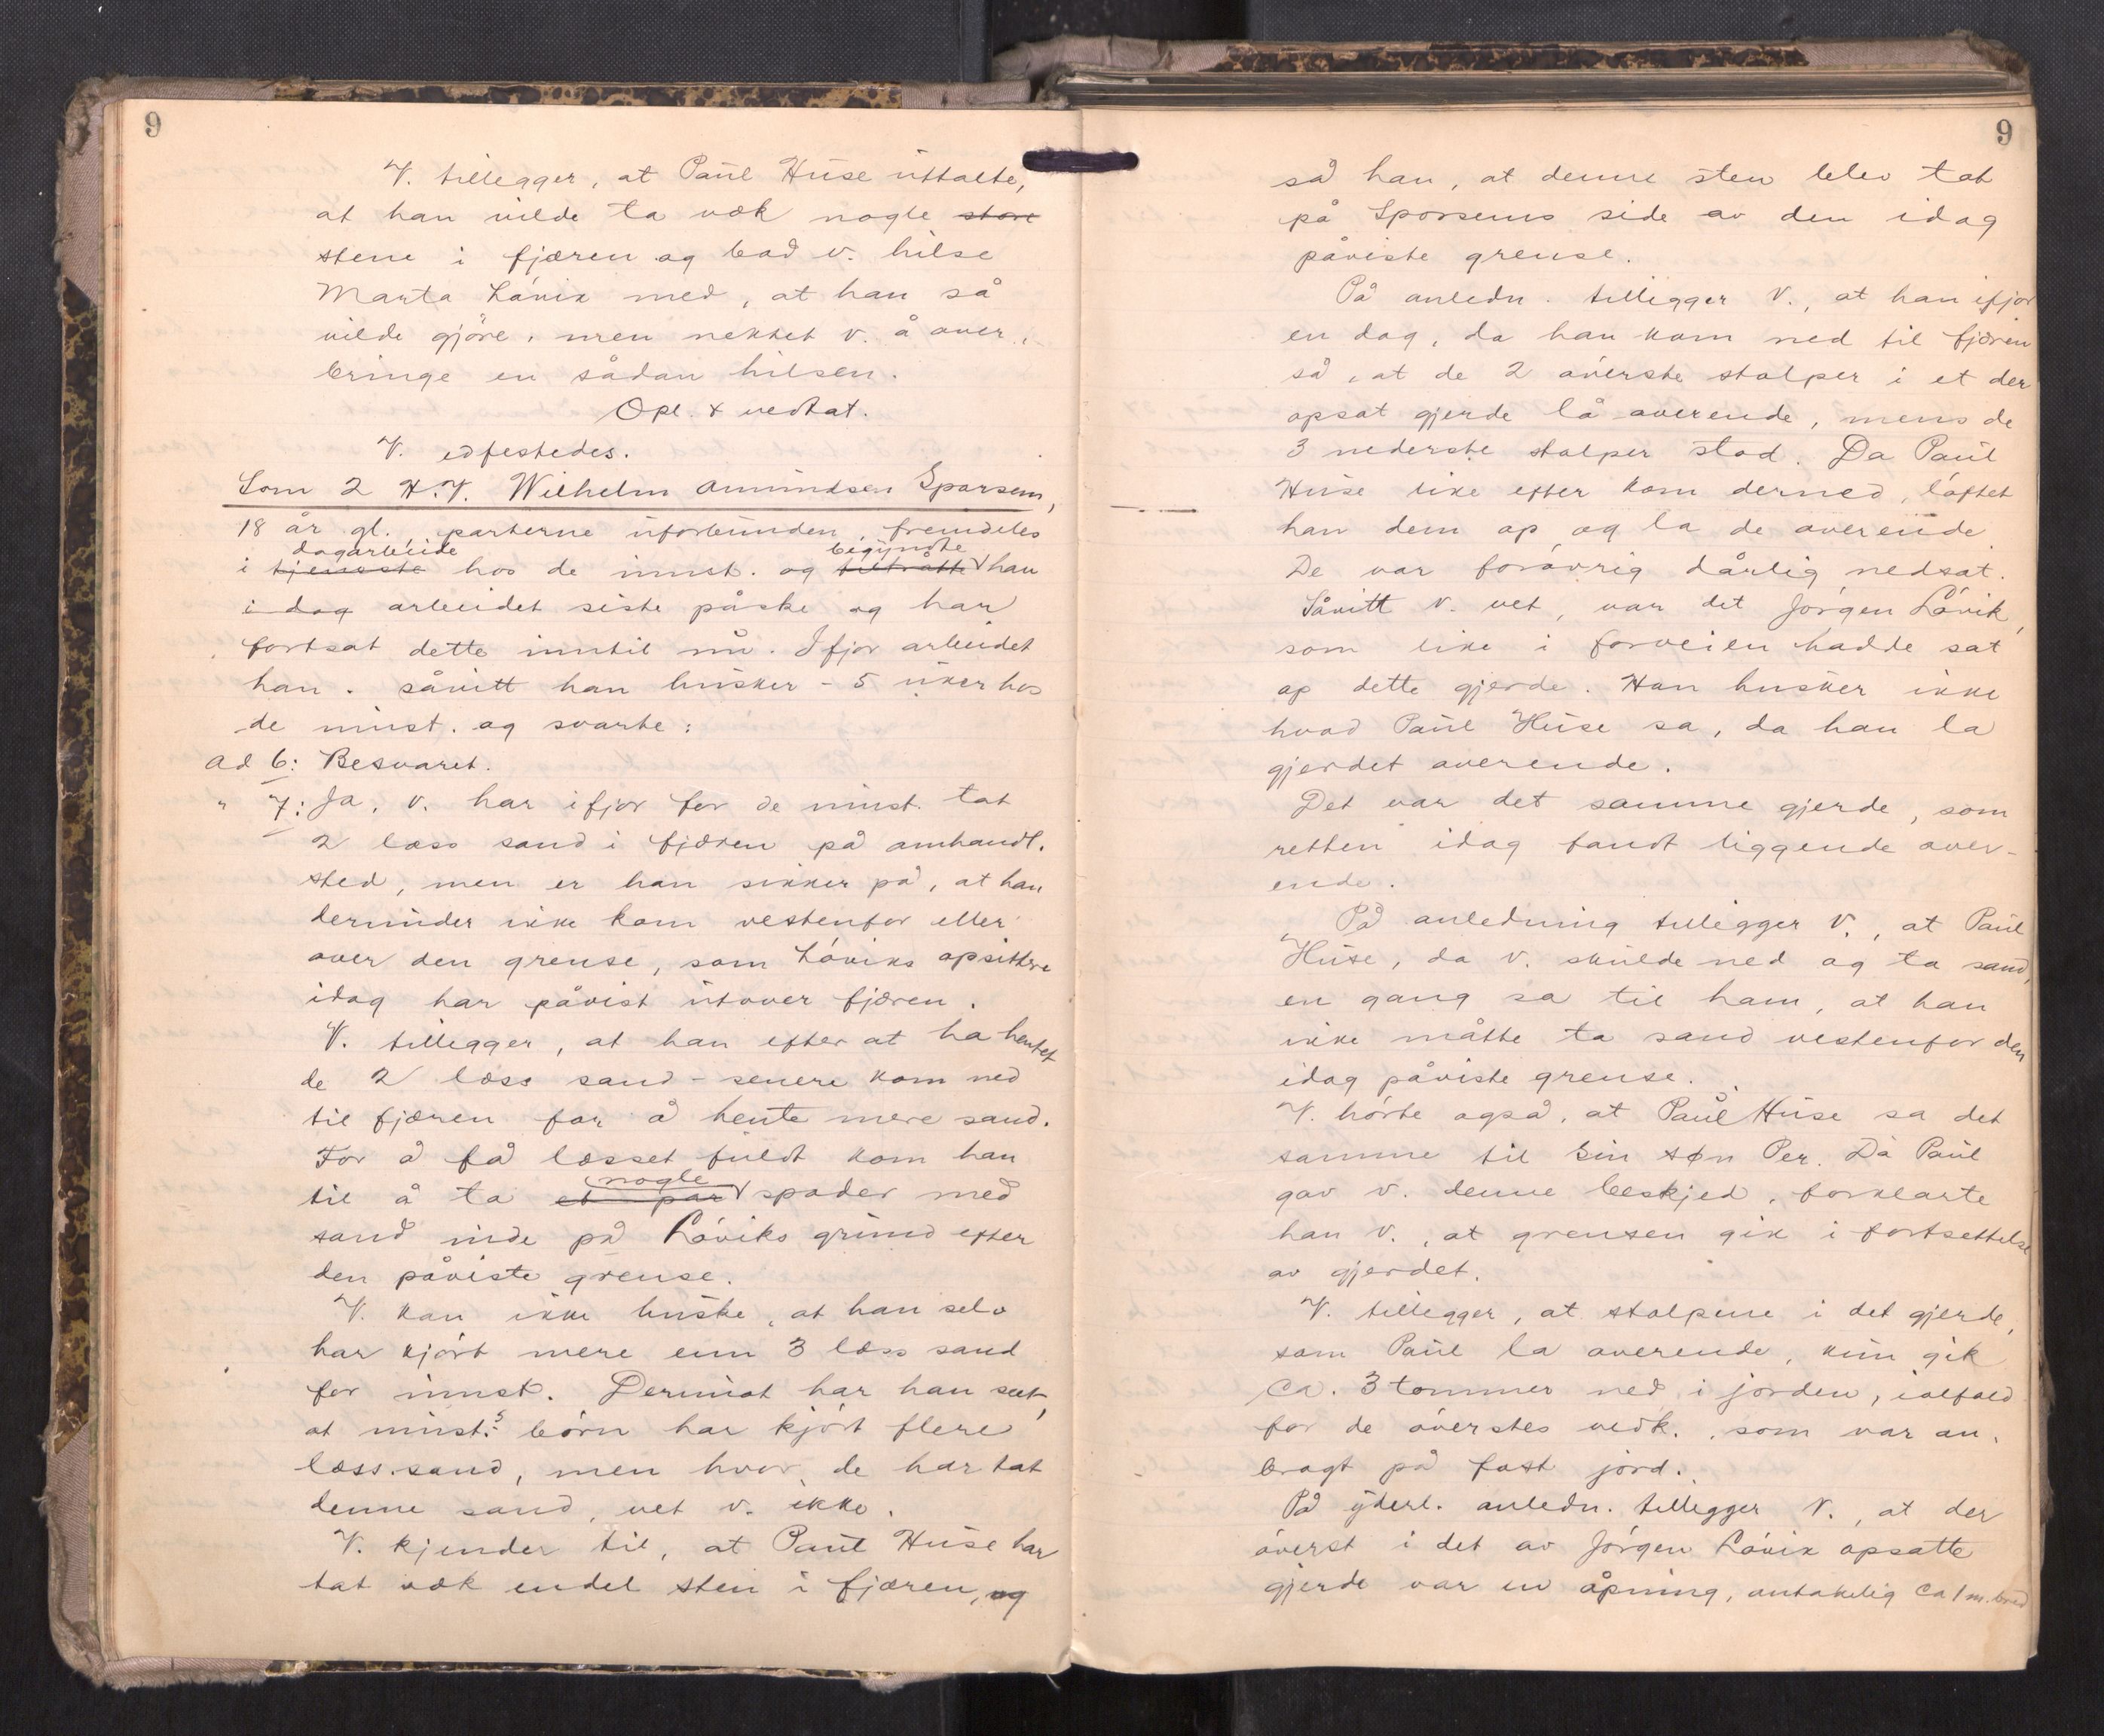 9
V. tillegger, at Paul Huse uttalte,
at han vilde ta væk nogle store
stene i fjæren og bad v. hilse
Marta Lóvik med, at han så
vilde gjóre, men nektet v. å over-
bringe en sådan hilsen.
Opl. & vedtat.
V. edfestedes.
Som 2 H.V. Wilhelm Amundsen Sporsem,
18 år gl., parterne uforbunden, fremdeles
dagarbeide begyndte
i tjeneste hos de innst. og tiltrådte han
i dag arbeidet siste påske og har
fortsat dette inntil nu. Ifjor arbeidet
han - såvitt han husker - 5 uker hos
de innst. og svarte:
Ad 6: Besvaret.
" 7: Ja, v. har ifjor for de innst. tat
2 læss sand i fjæren på omhandl.
sted, men er han sikker på, at han
derunder ikke kom vestenfor eller
over den grense, som Lóviks opsittere
idag har påvist utover fjæren.
V. tillegger, at han efter at ha hentet
de 2 læss sand - senere kom ned
til fjæren for å hente mere sand.
For å få læsset fuldt kom han
nogle
til å ta et par spader med
sand inde på Lóviks grund efter
den påviste grense.
V. kan ikke huske, at han selv
har kjórt mere enn 3 læss sand
for innst. Derimot har han sett,
at innst.s bórn har kjórt flere
læss sand, men hvor de har tat
denne sand, vet v. ikke.
V. kjender til, at Paul Huse har
tat væk endel sten i fjæren, og
9
så han, at denne sten blev tat
på Sporsems side av den idag
påviste grense.
På anledn. tillegger V., at han ifjor
en dag, da han kom ned til fjæren
så, at de 2 óverste stolper i et der
opsat gjerde lå overende, mens de
3 nederste stolper stod. Da Paul
Huse like efter kom derned, lóftet
han dem op og la de overende.
De var foróvrig dårlig nedsat.
Såvitt v. vet, var det Jórgen Lóvik,
som like i forveien hadde sat
op dette gjerde. Han husker ikke
hvad Paul Huse sa, da han la
gjerdet overende.
Det var det samme gjerde, som
retten idag fandt liggende over-
ende.
På anledning tillegger V., at Paul
Huse, da v. skulde ned og ta sand,
en gang sa til ham, at han
ikke måtte ta sand vestenfor den
idag påviste grense.
V. hórte også, at Paul Huse sa det
samme til sin søn Per. Da Paul
gav v. denne beskjed, forklarte
han v., at grensen gik i fortsettelse
av gjerdet.
V. tillegger, at stolpene i det gjerde,
som Paul la overende, kun gik
ca. 3 tommer ned i jorden, ialfald
for de óverstes vedk., som var an-
bragt på fast jord.
På yderl. anledn. tillegger V., at der
óverst i det av Jórgen Lóvik opsatte
gjerde var en åpning, antakelig ca 1 m. bred